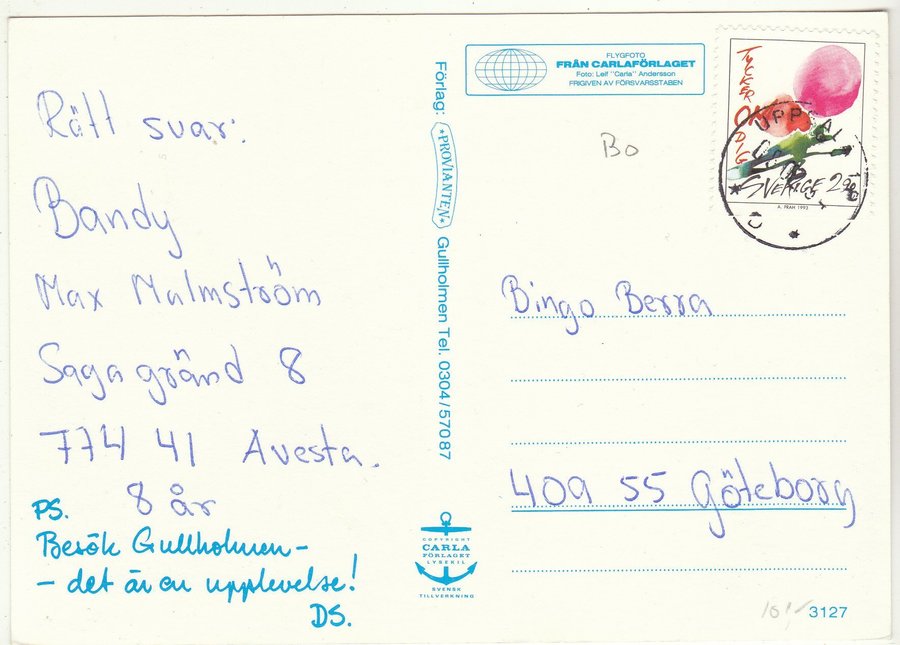 Rätt svar:
Bandy
Max Malmström
Saga gränd 8
774 41 Avesta.
8 år
PS.
Besök Gullholmen -
- det är en upplevelse!
DS.
Förlag: *PROVIANTEN* Gullholmen Tel. 0304/570 87
COPYRIGHT
CARLA
FÖRLAGET
LYSEKIL
SVENSK
TILLVERKNING
FLYGFOTO
FRÅN CARLAFÖRLAGET
Foto: Leif "Carla" Andersson
FRIGIVEN AV FÖRSVARSSTABEN
Bo
TYCKER OM DIG
SVERIGE 2.90
A. PRAH 1993
Bingo Berra
409 55 Göteborg
3127